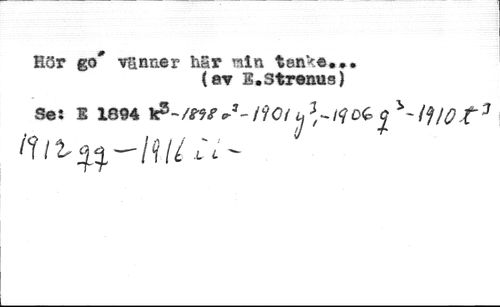 Hör go' vänner här min tanke...
(av E.Strenus)
Se: E 1894 k³-1898 o³-1901 y³,-1906 q³-1910 t³
1912 qq-1916 ii-